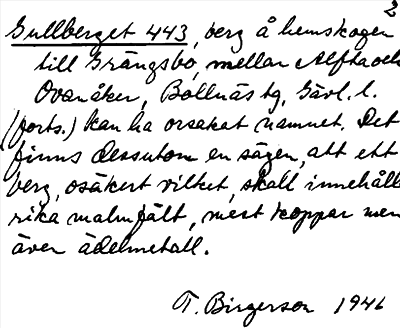 2
Gullberget 443, berg å hemskogen
till Grängsbo, mellan Alfta och
Ovanåker, Bollnäs tg, Gävl. l.
(forts.) kan ha orsakat namnet. Det
finns dessutom en sägen, att ett
berg, osäkert vilket, skall innehålla
rika malmfält, mest koppar men
även ädelmetall.
T. Birgerson 1946